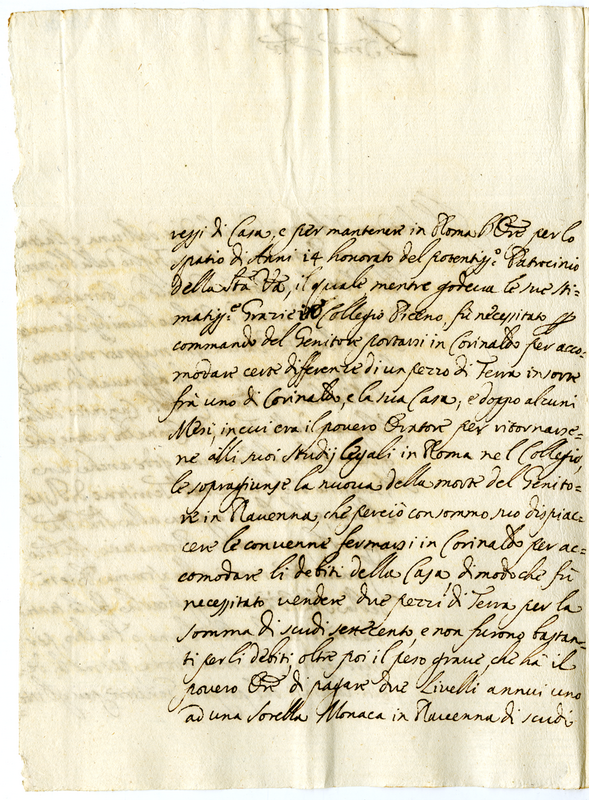 ressi di Casa, e per mantenere in Roma l'Ore per lo
spatio di Anni 14 honorato del potentiss.o Patrocinio
della Sta. Va, il quale mentre godeua le sue sti=
matiss.e Grazie Collegio Piceno, fù necessitato p
commando del Genitore portarsi in Corinaldo per acco=
modare certe differenze di un pezzo di Terra insorte
frà uno di Corinaldo, e la sua Casa, e doppo alcuni
Mesi, in cui era il pouero Oratore per ritornarse=
ne alli suoi Studij legali in Roma nel Collegio,
le sopragiunse la nuoua della morte del Genito=
re in Rauenna, che perciò con sommo suo dispia=
cere le conuenne fermarsi in Corinaldo per ac=
comodare li debiti della Casa di modo che fù
necessitato vendere due pezzi di Terra per la
somma di scudi settecento, e non furono bastan=
ti per li debiti, oltre poi il peso graue, che hà il
pouero Ore di pagare due Livelli annui uno
ad una Sorella Monaca in Rauenna di scudi